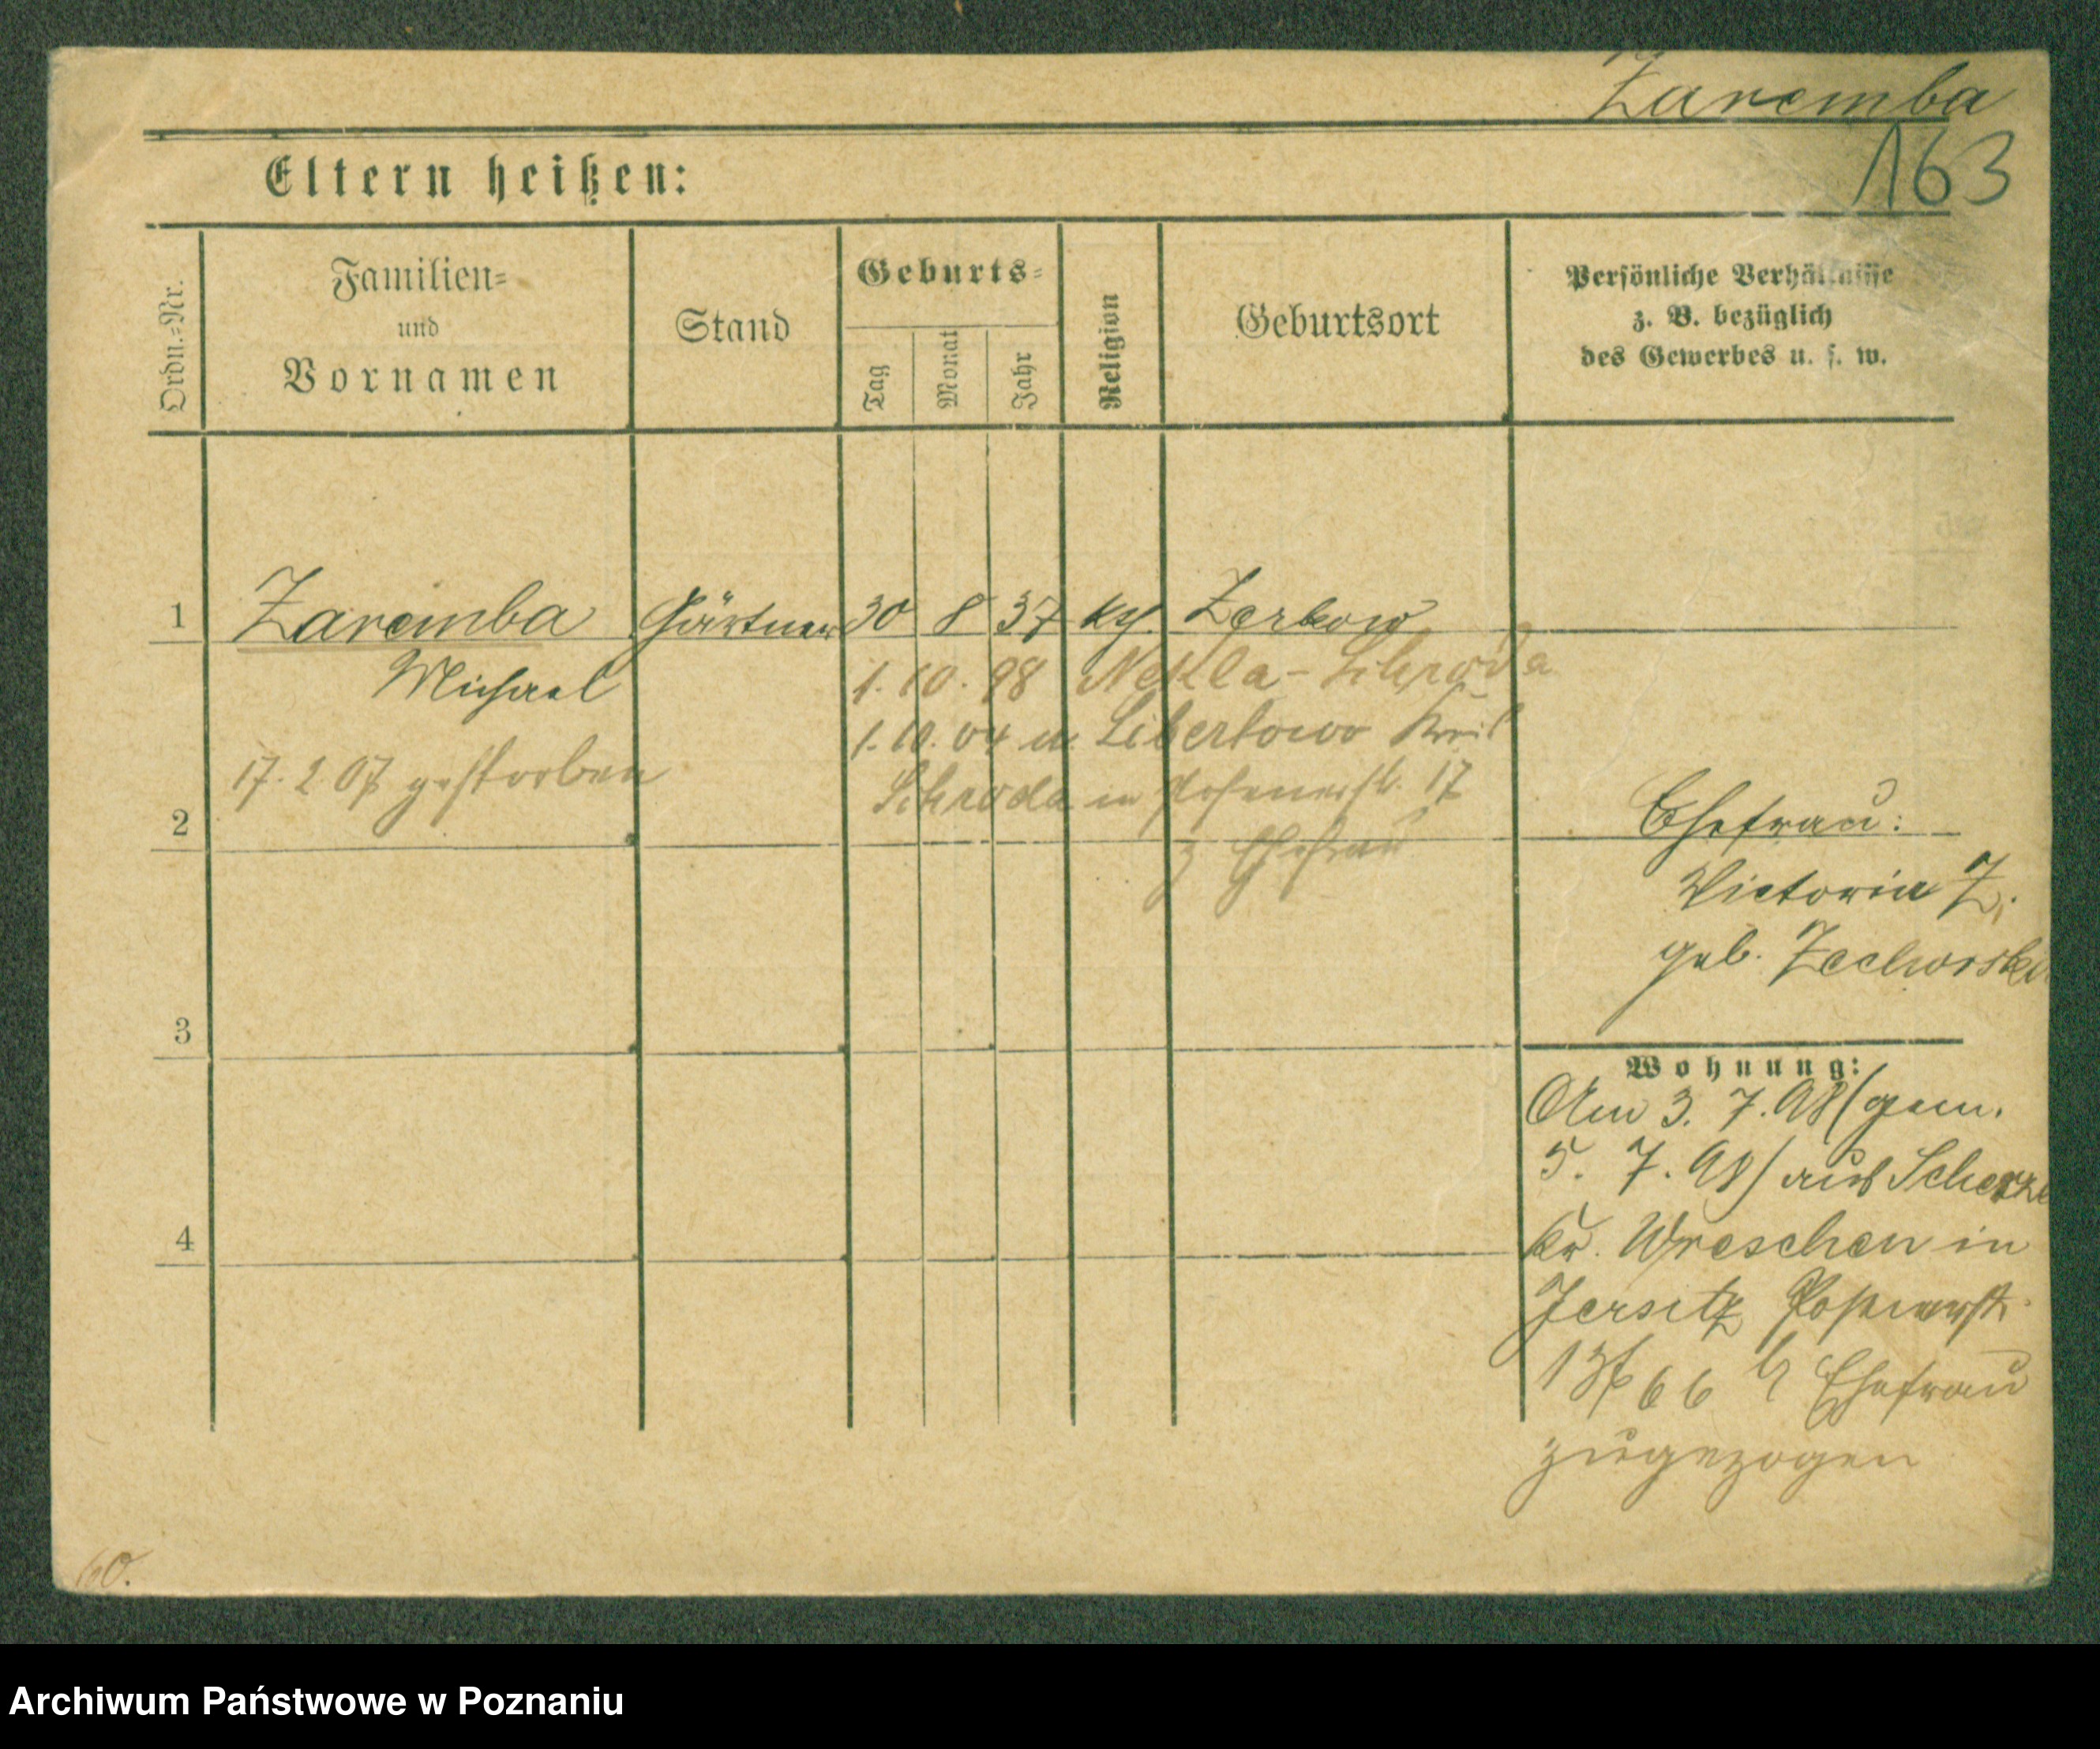 Zaremba
163
Eltern heißen:
Ordn.=Nr.
Familien=
und
Vornamen
Stand
Geburts=
Tag
Monat
Jahr
Religion
Geburtsort
Persönliche Verhältnisse
z. B. bezüglich
des Gewerbes u. s. w.
1 Zaremba Gärtner 30 8 37 Zerkow
Michael
1. 10. 98 Nekla - Schroda
1. 10. 04 n. Libertowo Kreis
17. 2. 07 gestorben
Schroda in Posenerstr. 17
z Ehefrau
2
Ehefrau:
Victoria Z.
geb.
3
Wohnung:
Am 3. 7. 98 (gem.
5. 7. 98) aus
Kr. Wreschen in
4
Jersitz Posenerstr.
66 Ehefrau
zugezogen
60.
Archiwum Państwowe w Poznaniu